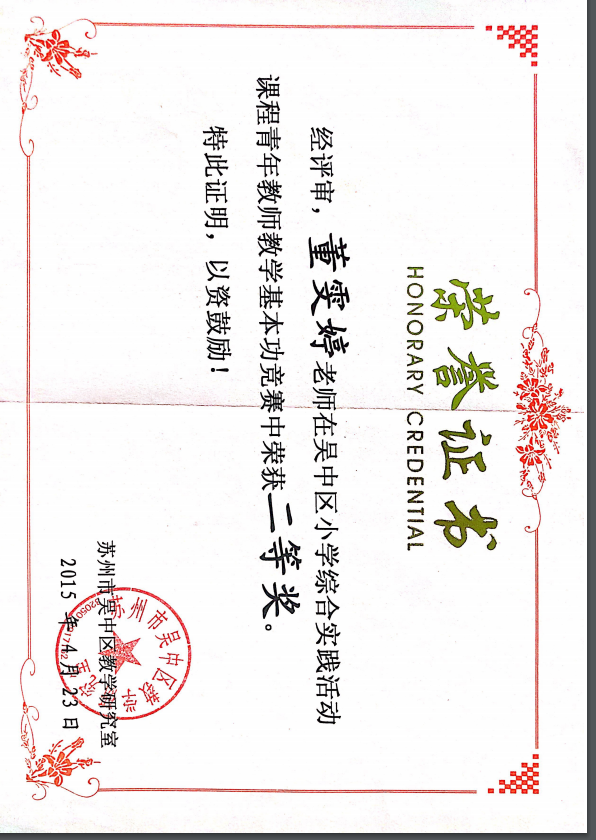 荣誉证书
HONORARY CREDENTIAL
经评审，董雯婷老师在吴中区小学综合实践活动
课程青年教师教学基本功竞赛中荣获二等奖。
特此证明，以资鼓励！
苏州市吴中区教学研究室
2015 年 4 月 23 日